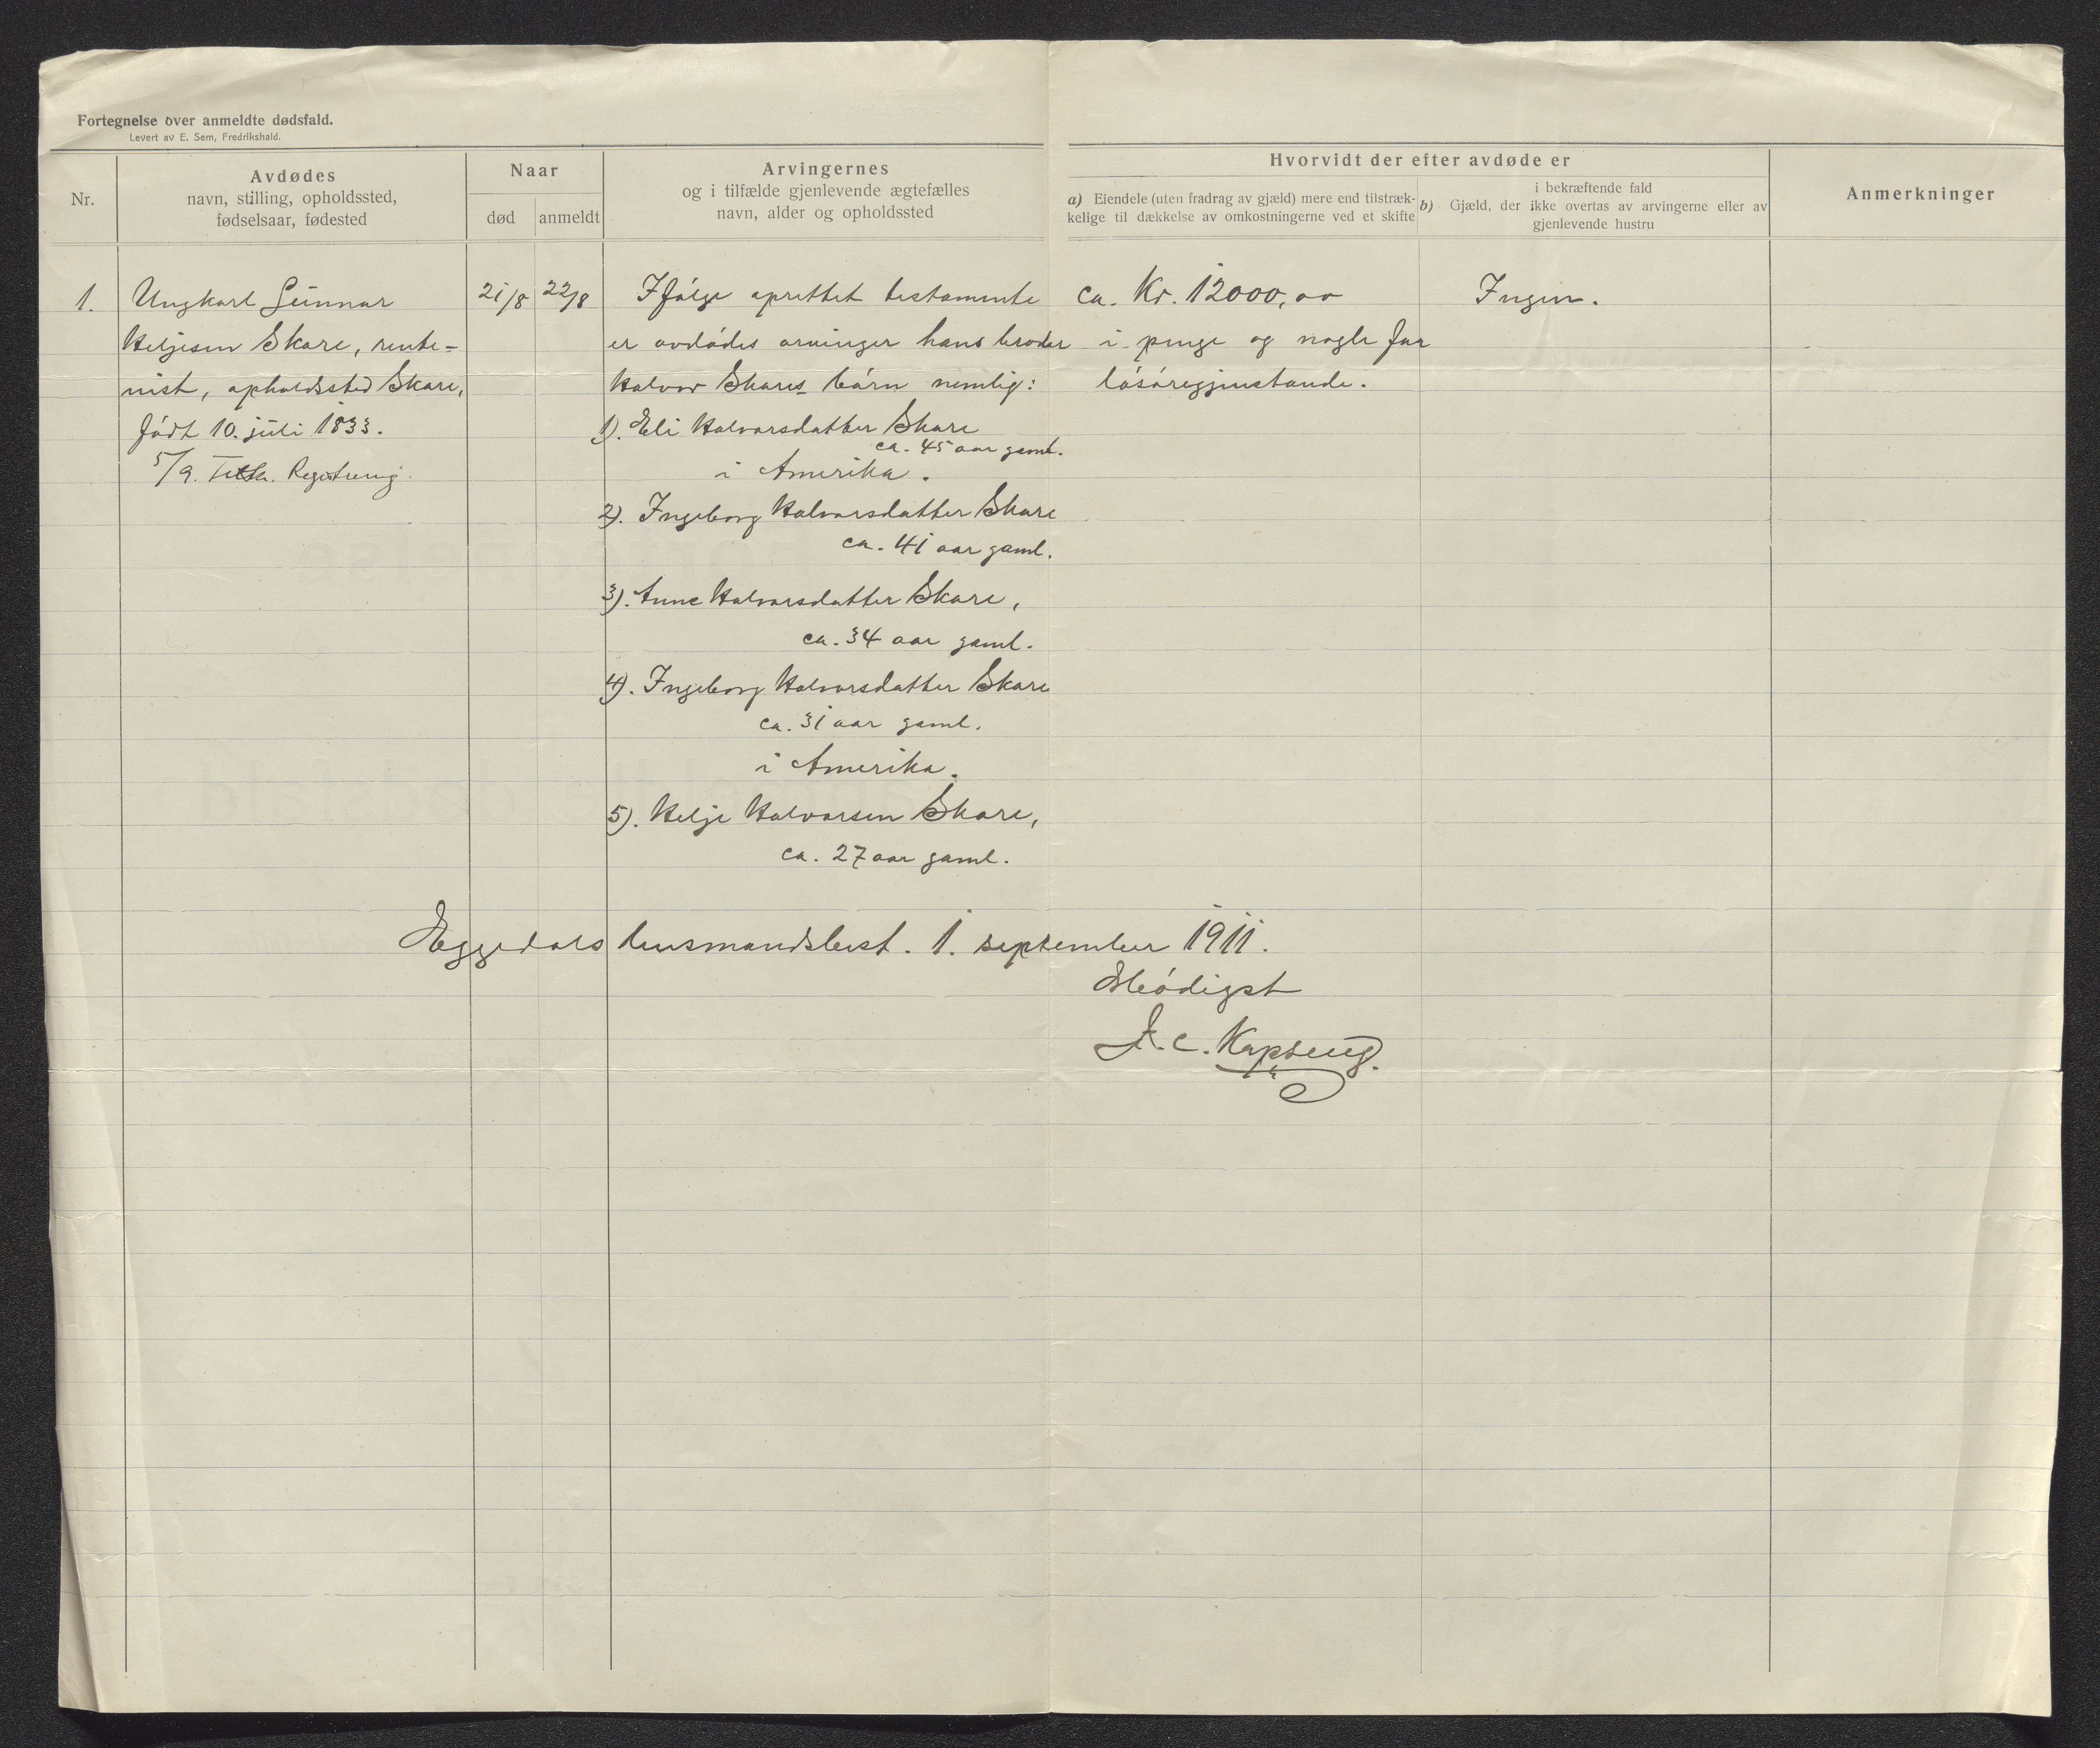 Fortegnelse over anmeldte dødsfald.
Levert av E. Sem, Fredrikshald.
Nr.
Avdødes
navn, stilling, opholdssted,
fødselsaar, fødested
Naar
død
anmeldt
Arvingernes
og i tilfælde gjenlevende ægtefælles
navn, alder og opholdssted
Hvorvidt der efter avdøde er
a) Eiendele (uten fradrag av gjæld) mere end tilstræk-
kelige til dækkelse av omkostningerne ved et skifte
i bekræftende fald
b) Gjæld, der ikke overtas av arvingerne eller av
gjenlevende hustru
Anmerkninger
1.
Ungkarl Gunnar
Heljesen Skare, rente-
nist, opholdssted Skare,
født 10. juli 1833.
5/9. Registrering.
21/8
22/8
Ifølge oprettet testamente
er avdødes arvinger hans broder
Halvor Skares børn nemlig:
1). Eli Halvorsdatter Skare
ca. 45 aar gaml.
i Amerika.
2). Ingeborg Halvorsdatter Skare
ca. 41 aar gaml.
3). Anne Halvorsdatter Skare,
ca. 34 aar gaml.
4). Ingeborg Halvorsdatter Skare
ca. 31 aar gaml.
i Amerika.
5). Helje Halvorsen Skare,
ca. 27 aar gaml.
ca. Kr. 12000,00
i penge og nogle faa
løsøregjenstande.
Ingen.
Eggedals lensmandsbest. 1. september 1911.
Ærbødigst